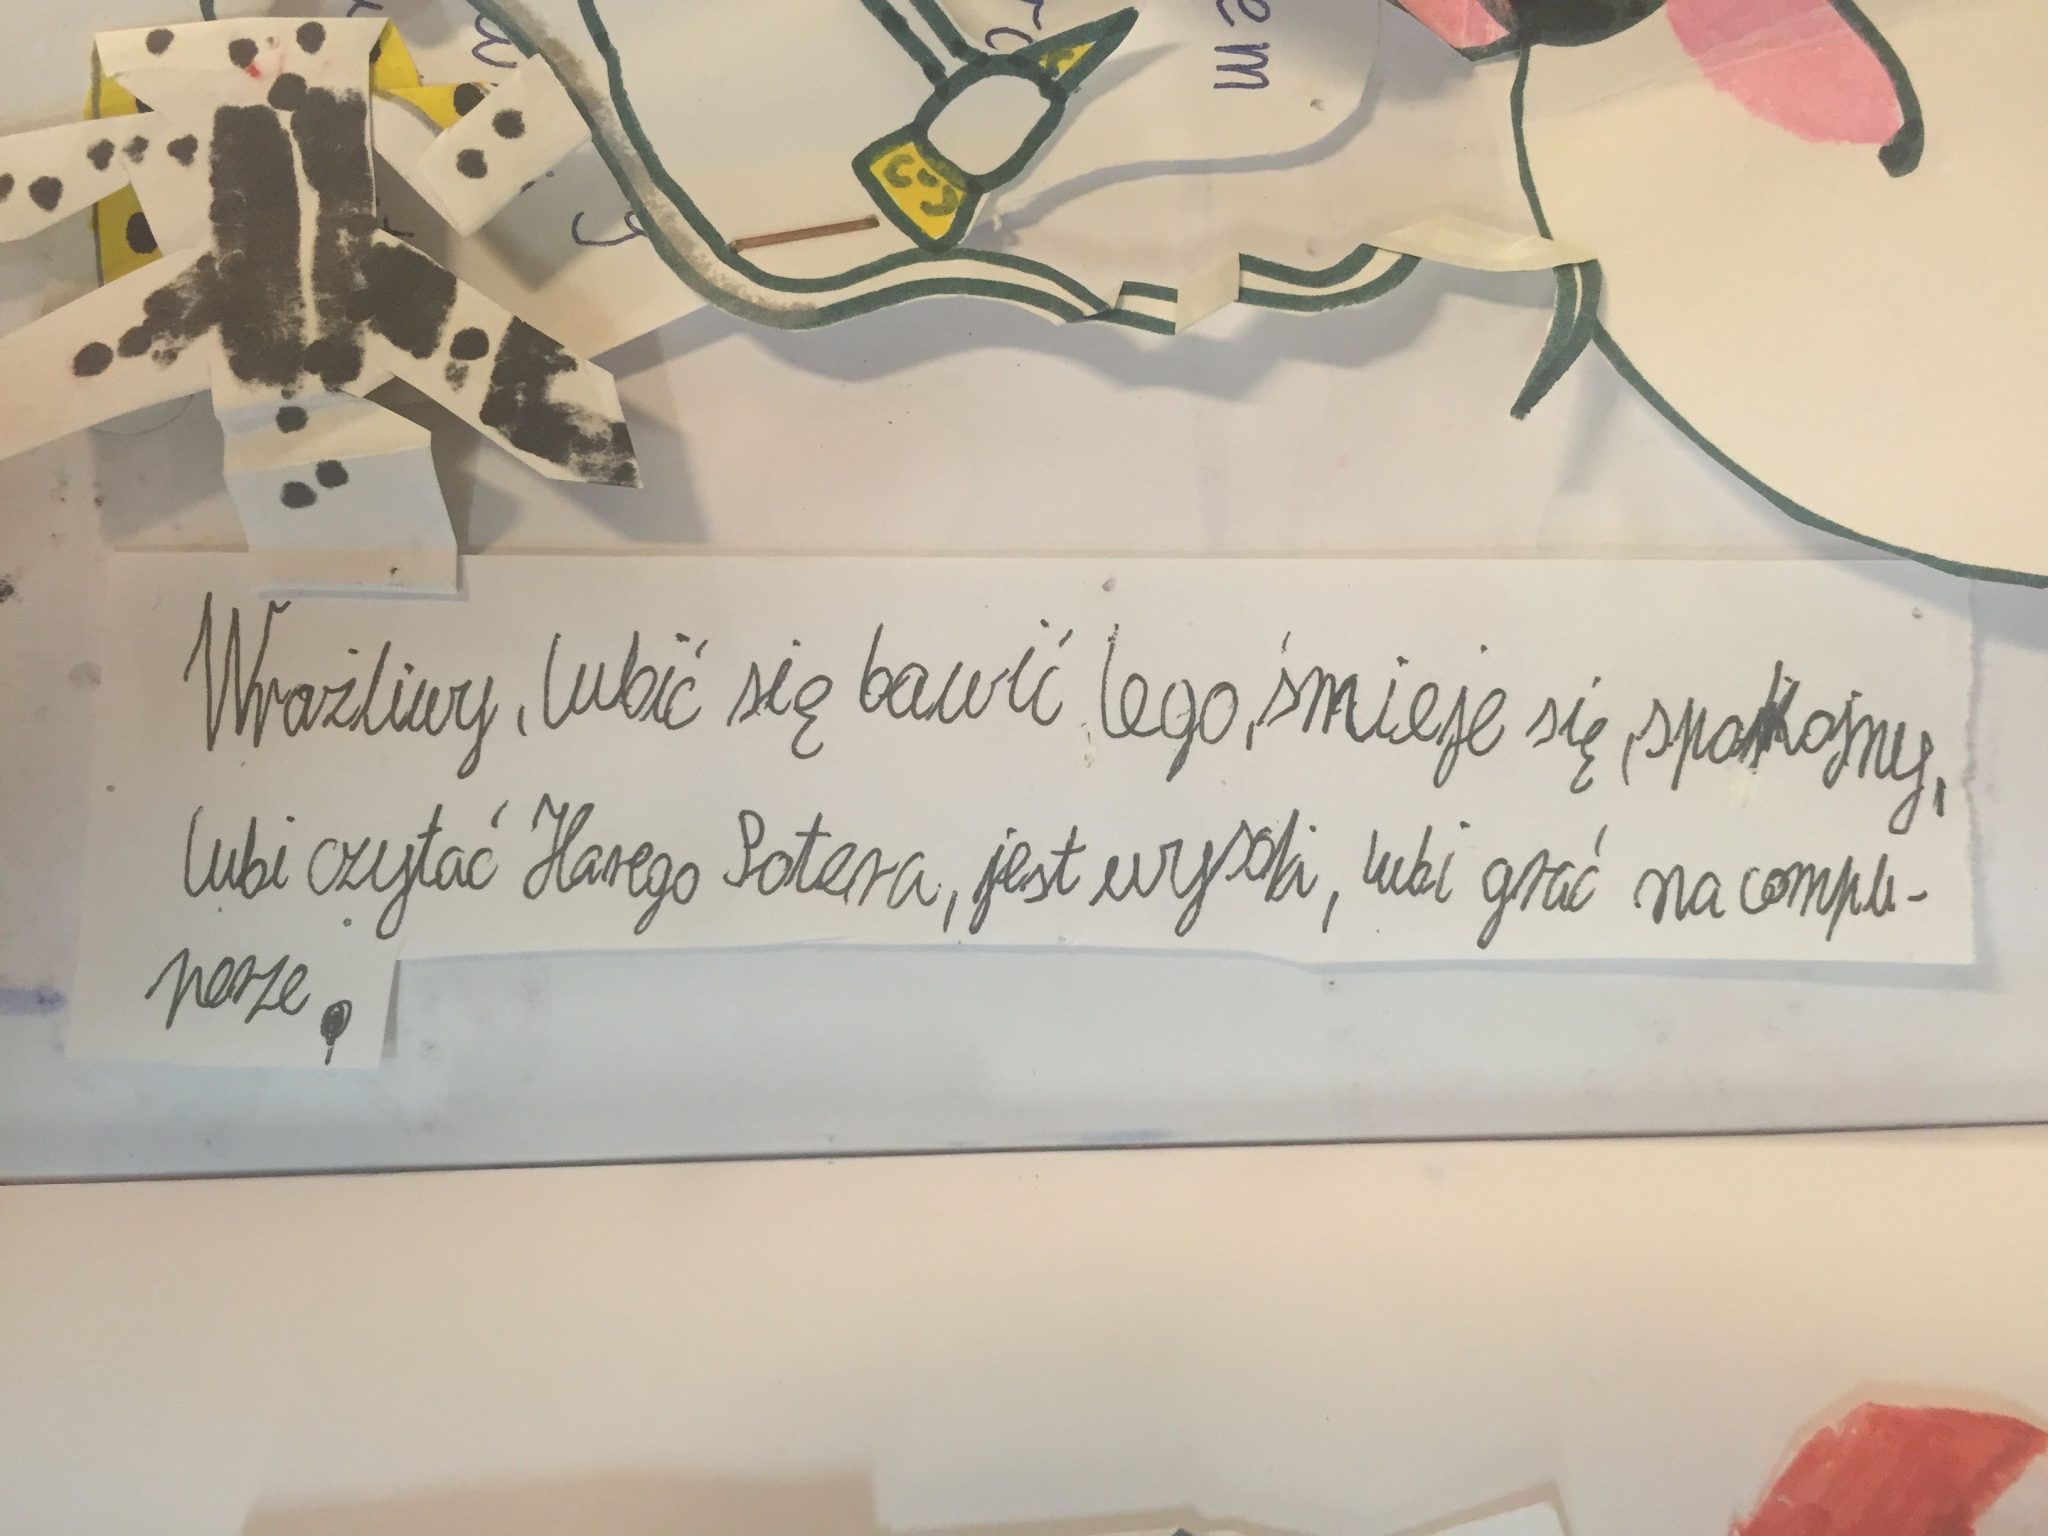 em
Wrażliwy, lubić się bawić lego, śmieje się, spokojny,
lubi czytać Harego Potera, jest wysoki, lubi grać na compu-